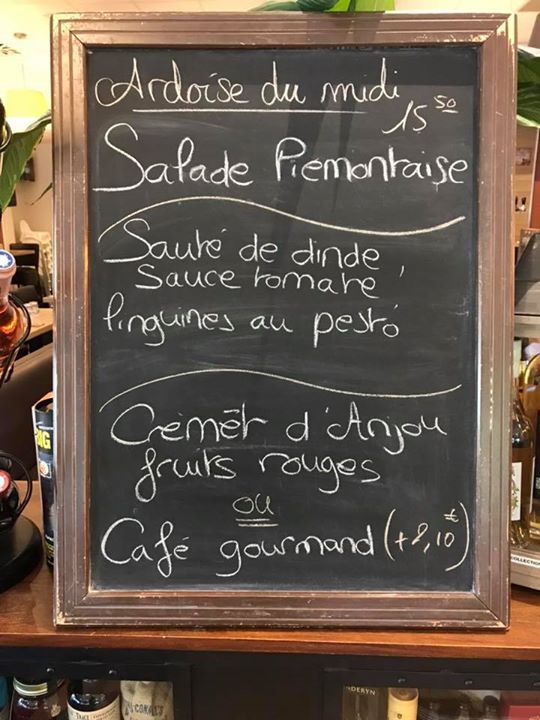 Ardoise du midi
15 50
Salade Piemontaise
Sauté de dinde
sauce tomate,
linguines au pesto
Crémêt d'Anjou
fruits rouges
ou
Café gourmand (+2,10€)